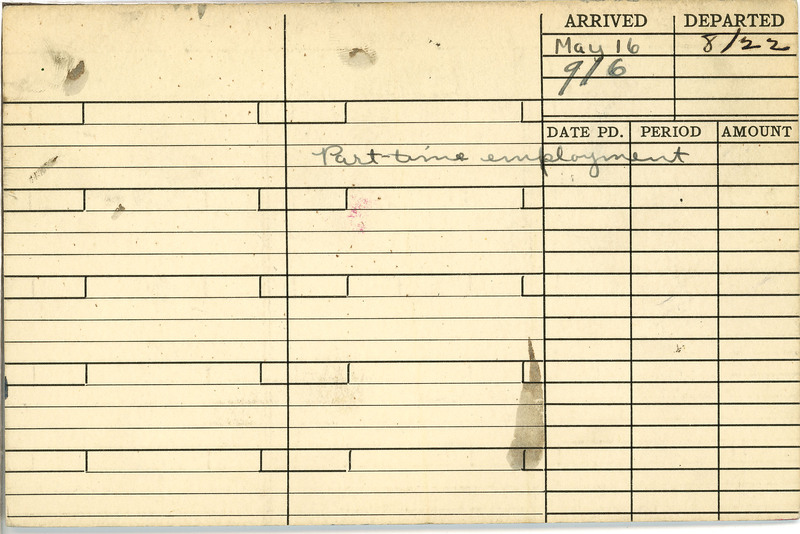 ARRIVED DEPARTED
May 16 8/22
9/6
DATE PD. PERIOD AMOUNT
Part-time employment